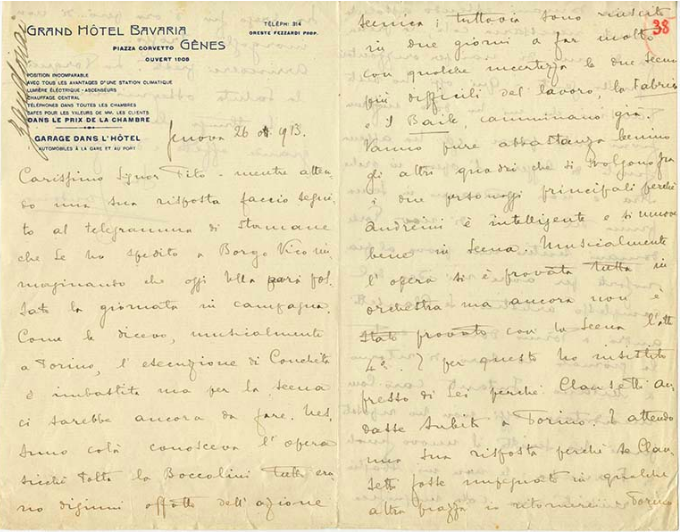 Zandonai
GRAND HÔTEL BAVARIA
PIAZZA CORVETTO GÊNES
OUVERT 1908
TÉLÉPH: 314
ORESTE FEZZARDI PROP.
POSITION INCOMPARABLE
AVEC TOUS LES AVANTAGES D'UNE STATION CLIMATIQUE
LUMIÈRE ÉLECTRIQUE - ASCENSEURS
CHAUFFAGE CENTRAL
TÉLÉPHONES DANS TOUTES LES CHAMBRES
SAFES POUR LES VALEURS DE MM. LES CLIENTS
DANS LE PRIX DE LA CHAMBRE
GARAGE DANS L'HÔTEL
AUTOMOBILES À LA GARE ET AU PORT
Genova 26 913.
Carissimo Signor Tito - mentre atten-
do una sua risposta faccio segui-
to al telegramma di stamane
che Le ho spedito a Borgo Vico im-
maginando che oggi Ella
la giornata in campagna.
Come le dicevo, musicalmente
a Torino, l'esecuzione di Conchita
è imbastita ma per la scena
ci sarebbe ancora da fare. Nes-
suno colà conosceva l'opera
sicchè tolta la Boccolini tutti era-
no digiuni affatto dell'azione
38
scenica; tuttavia sono riuscito
in due giorni a far molto
con qualche incertezza le due scene
più difficili del lavoro, la Fabbrica
e il Baile camminano già.
Vanno pure abbastanza benino
gli altri quadri che si svolgono fra
i due personaggi principali perchè
Andreini è intelligente e si muove
bene in scena. Musicalmente
l'opera si è provata tutta in
orchestra ma ancora non è
stato provato con la scena l'atto
4º. E per questo ho insistito
presso di Lei perchè Clausetti an-
dasse subito a Torino. E attendo
una sua risposta perchè se Clau-
setti fosse impegnato in qualche
altra piazza io ritornerei a Torino